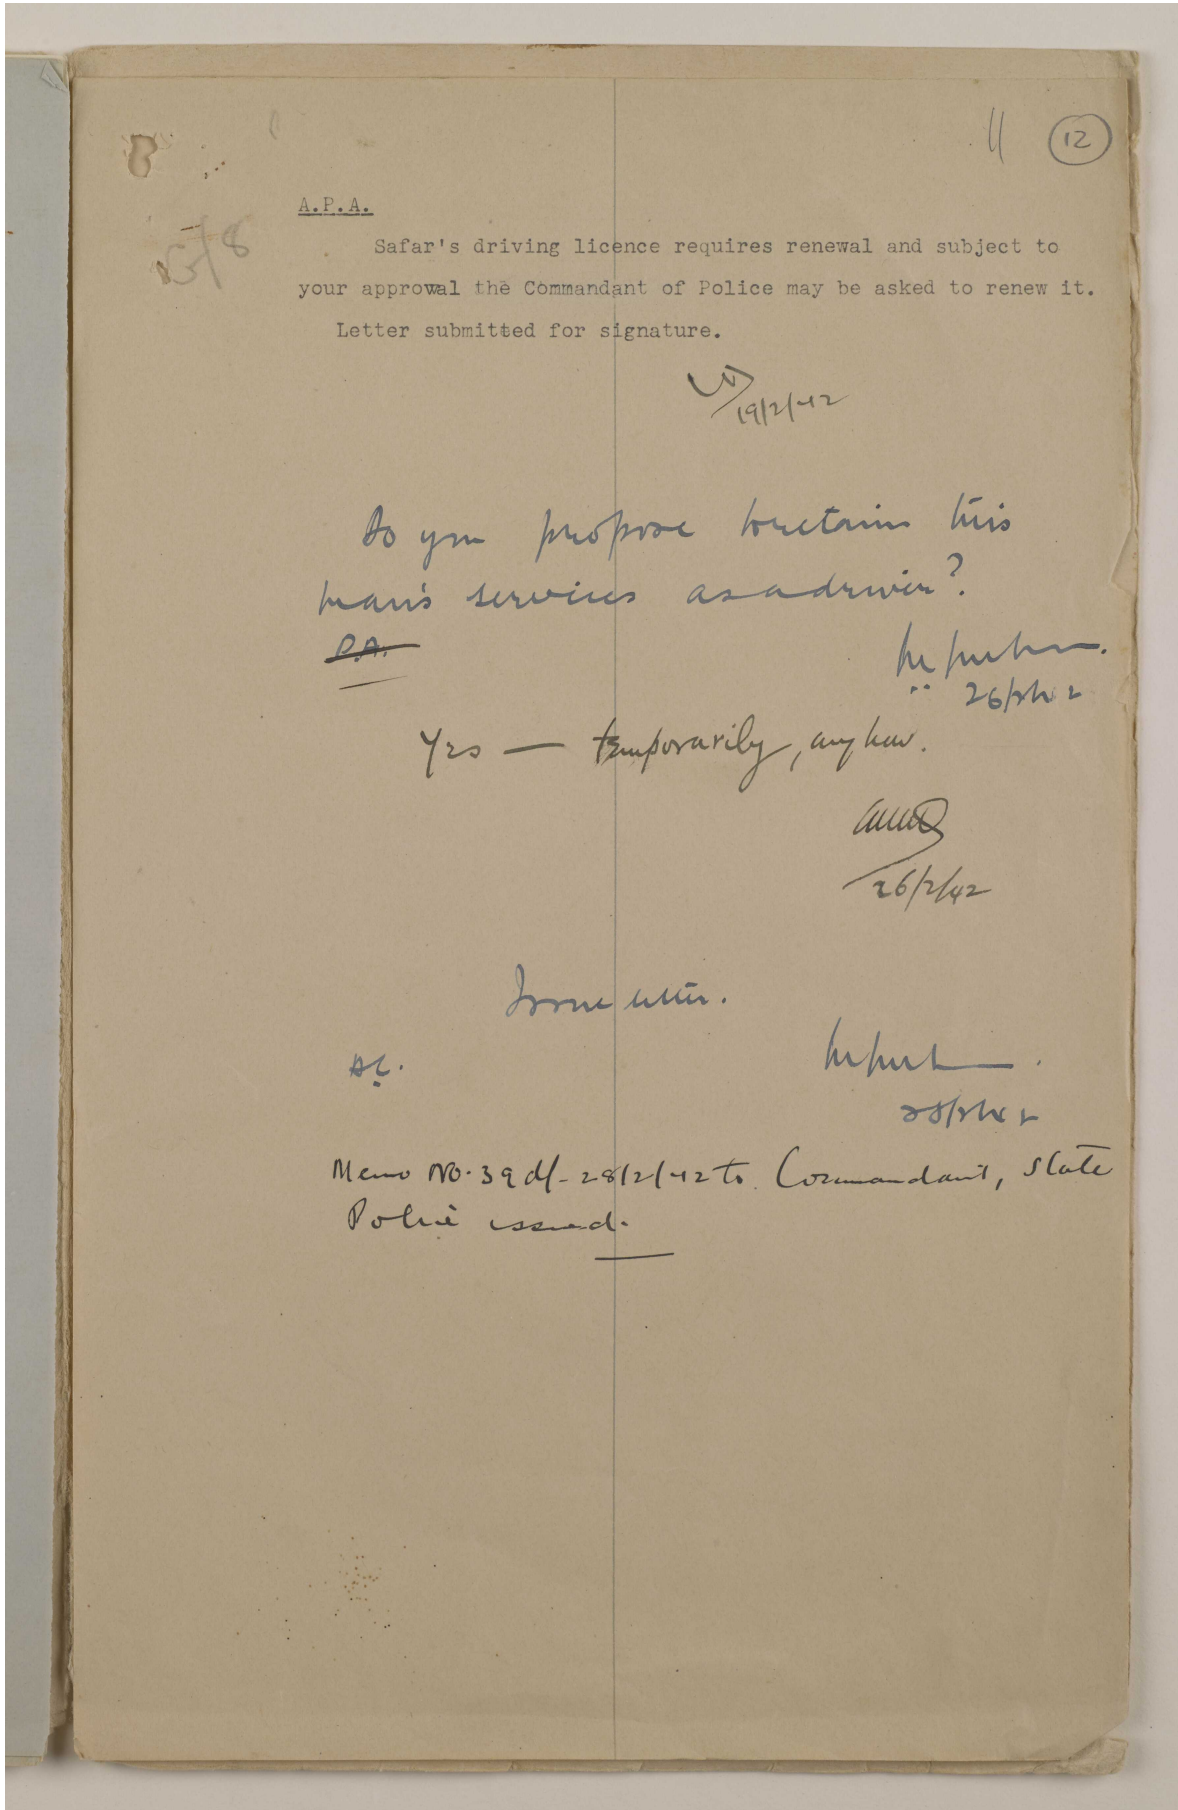 11 12
G/8
A.P.A.
Safar's driving licence requires renewal and subject to
your approval the Commandant of Police may be asked to renew it.
Letter submitted for signature.
19/2/42
Do you propose to retain this
man's services as a driver?
P.A.
26/2/42
Yes — temporarily, anyhow.
26/2/42
Issue letter.
28/2/42
Memo No. 39 d/- 28/2/42 to Commandant, State
Police issued.